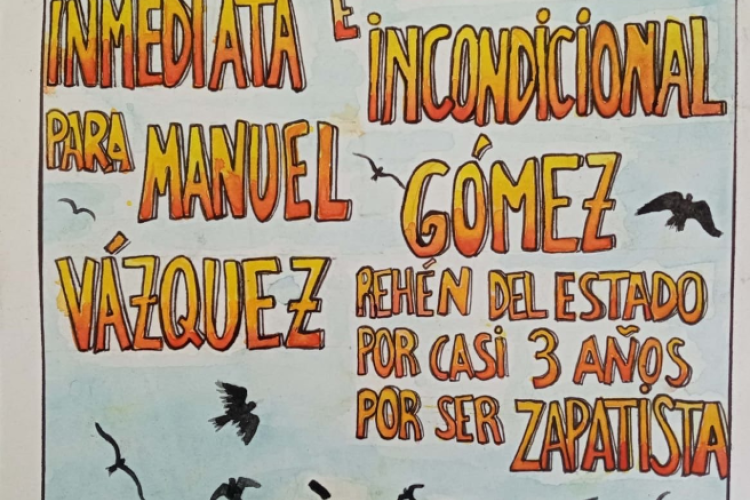 INMEDIATA E
INCONDICIONAL
PARA MANUEL
GÓMEZ
VÁZQUEZ
REHÉN DEL ESTADO
POR CASI 3 AÑOS
POR SER ZAPATISTA